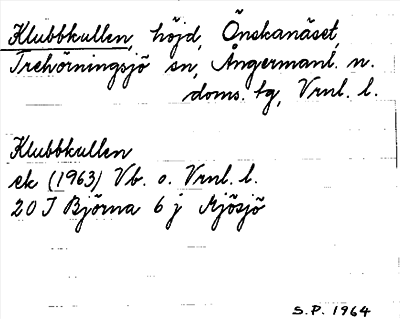 Klubbkullen, höjd, Önskanäset,
Trehörningsjö sn, Ångermanl. n.
doms. hg, Vrnl. l.
Klubbkullen
ek (1963) Vb. o. Vrnl. l.
20 I Björna 6 j Mjösjö
S.P. 1964